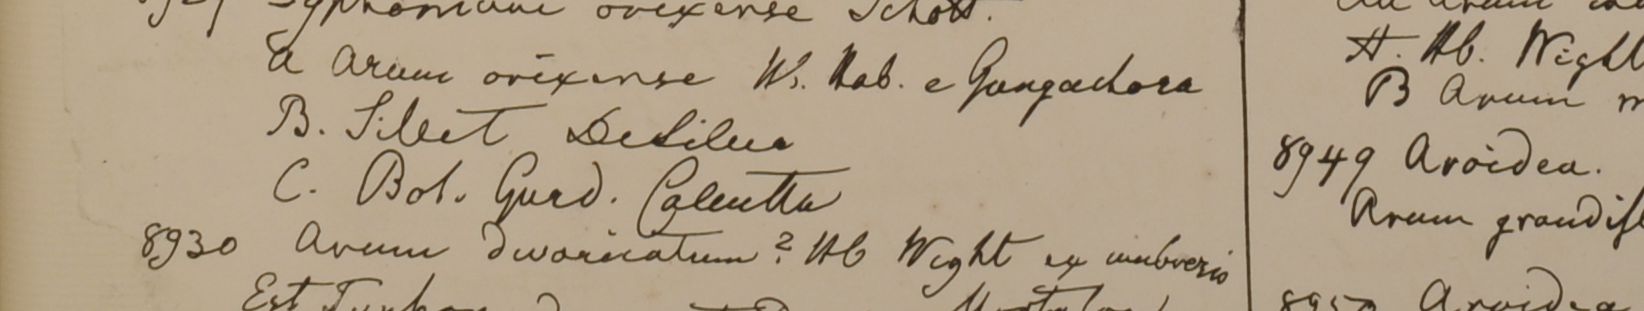 Typhonium orixense Schott.
a Arum orixense W. Hab. e Gongachora
B. Sillet DeSilva
C. Bot. Gard. Calcutta
8930 Arum divaricatum? Hb Wight ex umbrosis
Est
H. Hb. Wight
B Arum
8949 Aroidea.
Arum grandif
8950 Aroidea